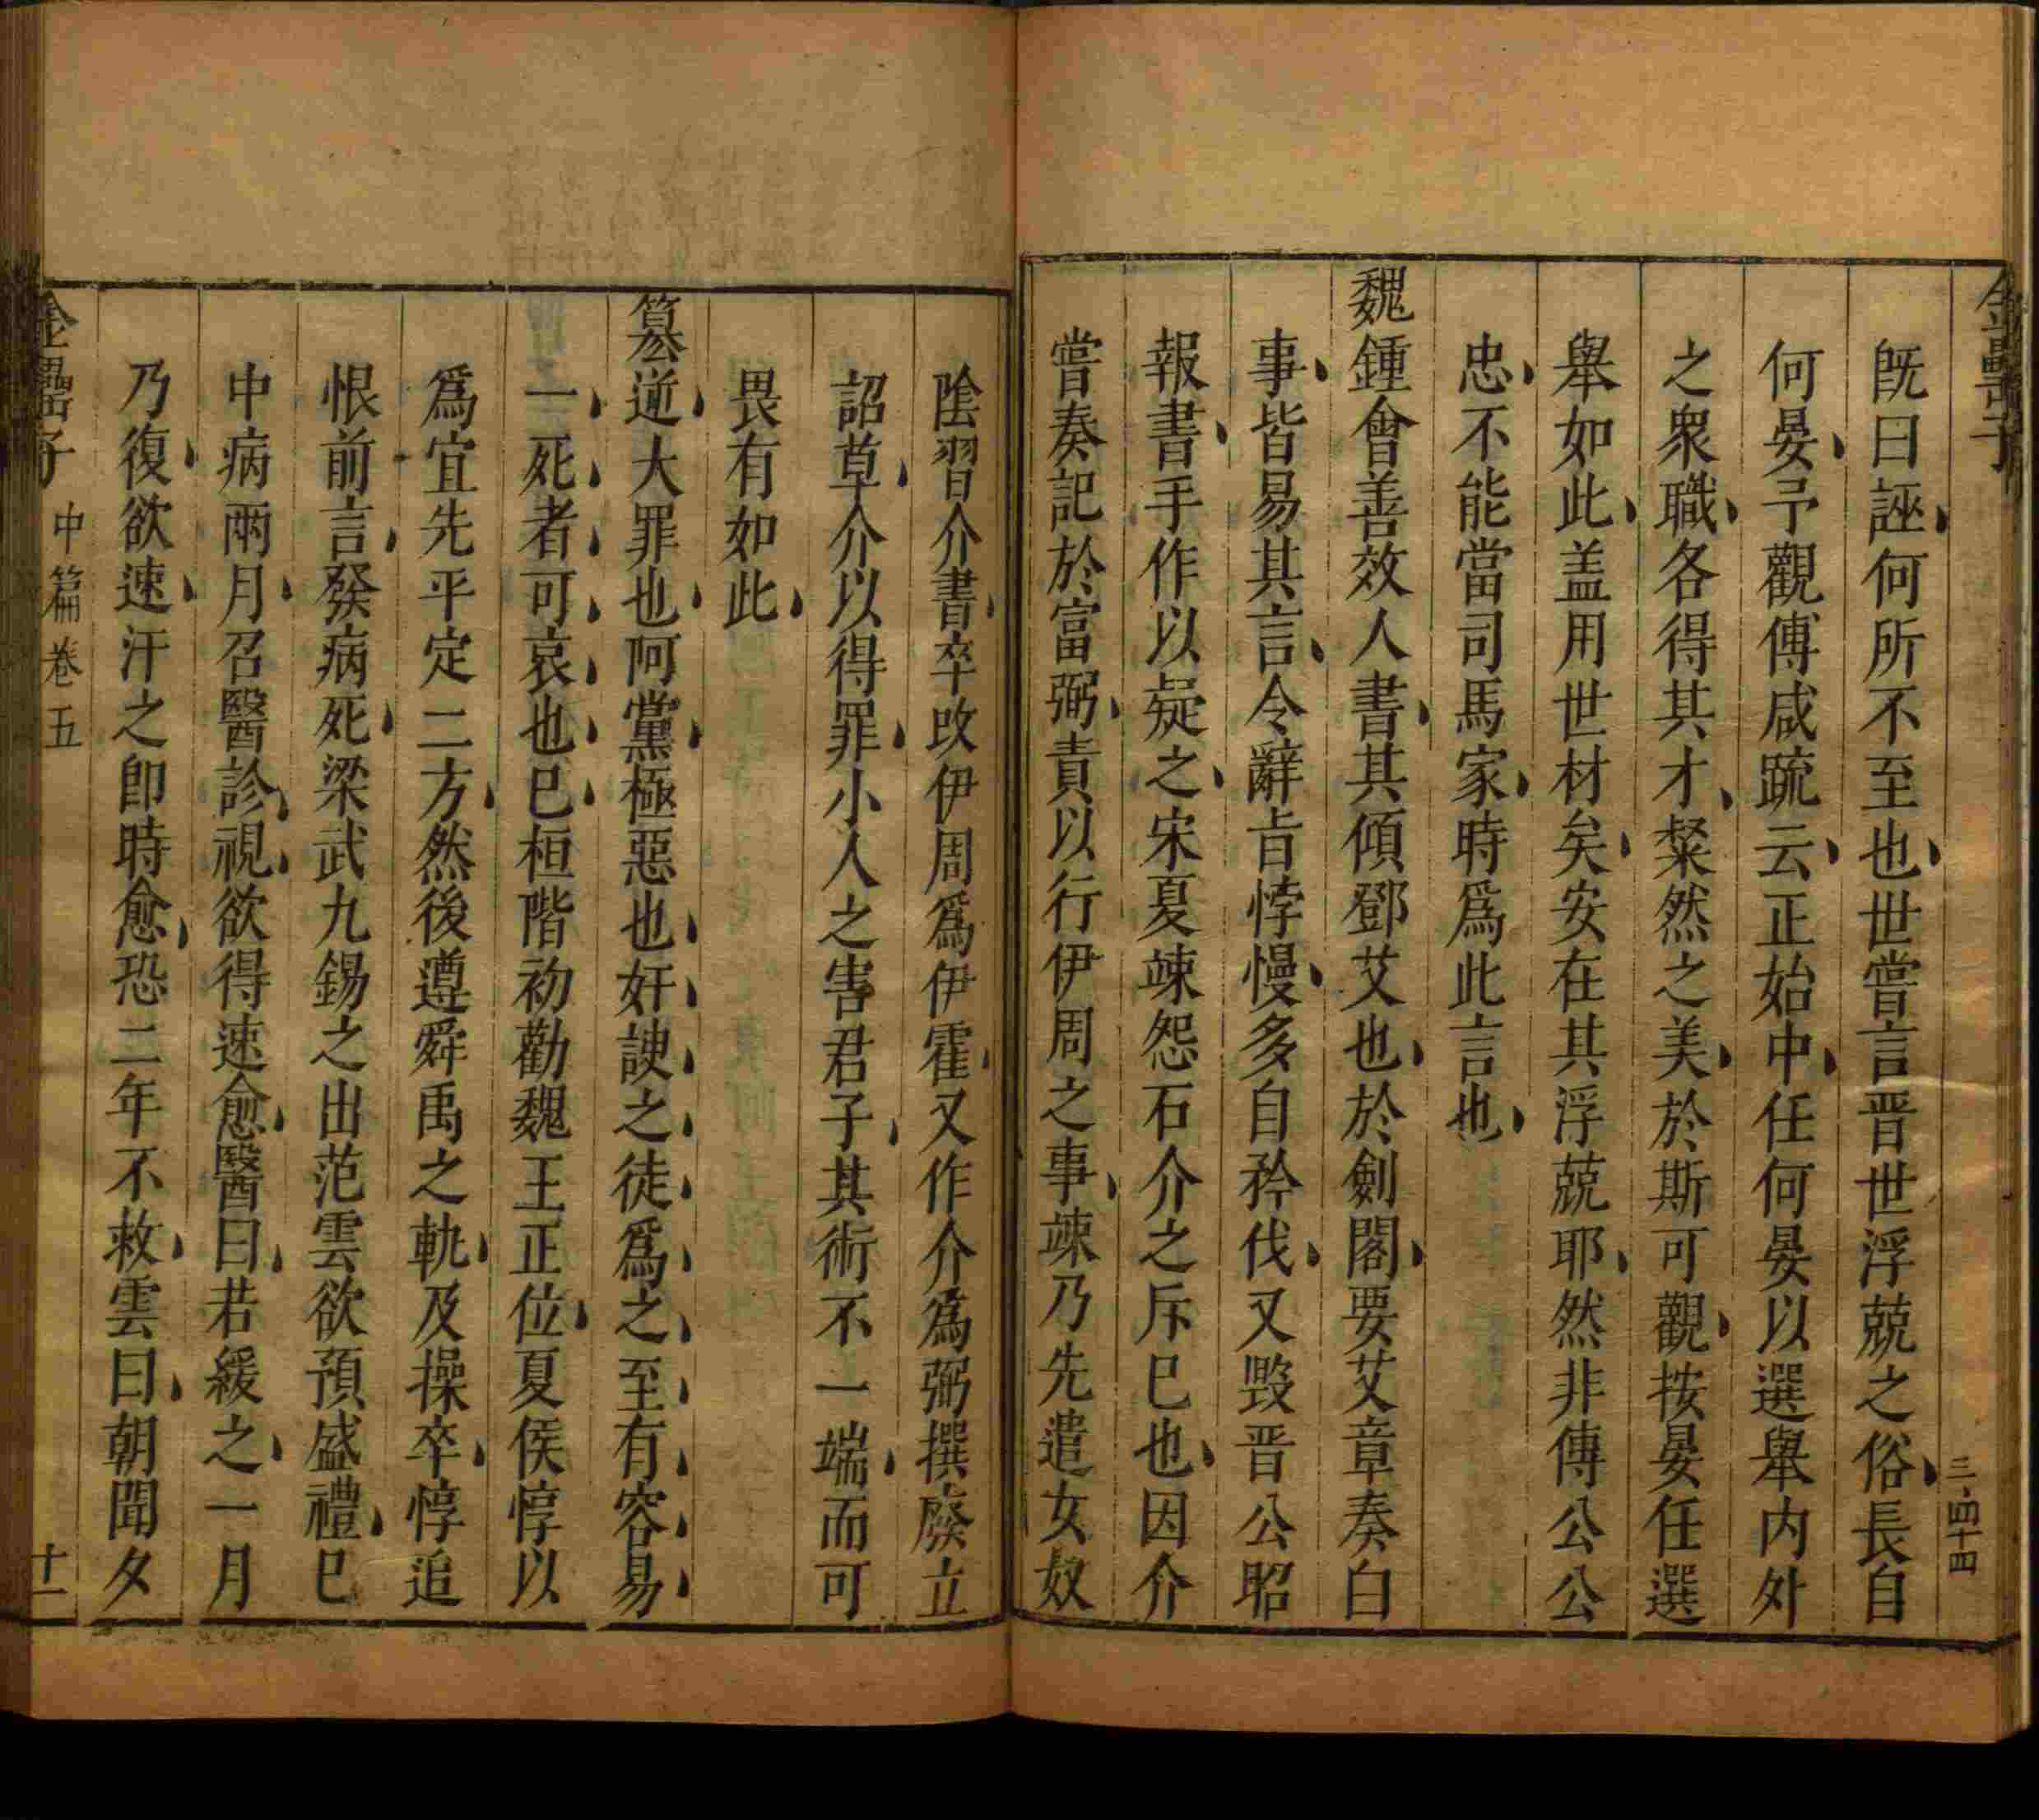 金罍子
三·四十四
旣曰誣何所不至也世嘗言晋世浮競之俗長自
何晏予觀傅咸䟽云正始中任何晏以選舉内外
之衆職各得其才粲然之美於斯可觀按晏任選
舉如此盖用世材矣安在其浮競耶然非傅公公
忠不能當司馬家時爲此言也
魏鍾會善效人書其傾鄧艾也於劍閣要艾章奏白
事皆易其言令辭㫖悖慢多自矜伐又毁晋公昭
報書手作以疑之宋夏竦怨石介之斥巳也因介
嘗奏記於富弼責以行伊周之事竦乃先遣女奴
陰習介書卒改伊周爲伊霍又作介爲弼撰廢立
詔草介以得罪小人之害君子其術不一端而可
畏有如此
篡逆大罪也阿黨極惡也奸諛之徒爲之至有容易
一死者可哀也巳桓階初勸魏王正位夏侯惇以
爲宜先平定二方然後遵舜禹之軌及操卒惇追
恨前言發病死梁武九錫之出范雲欲預盛禮巳
中病兩月召醫診視欲得速愈醫曰若緩之一月
乃復欲速汗之即時愈恐二年不救雲曰朝聞夕
金罍子
中篇卷五
十一